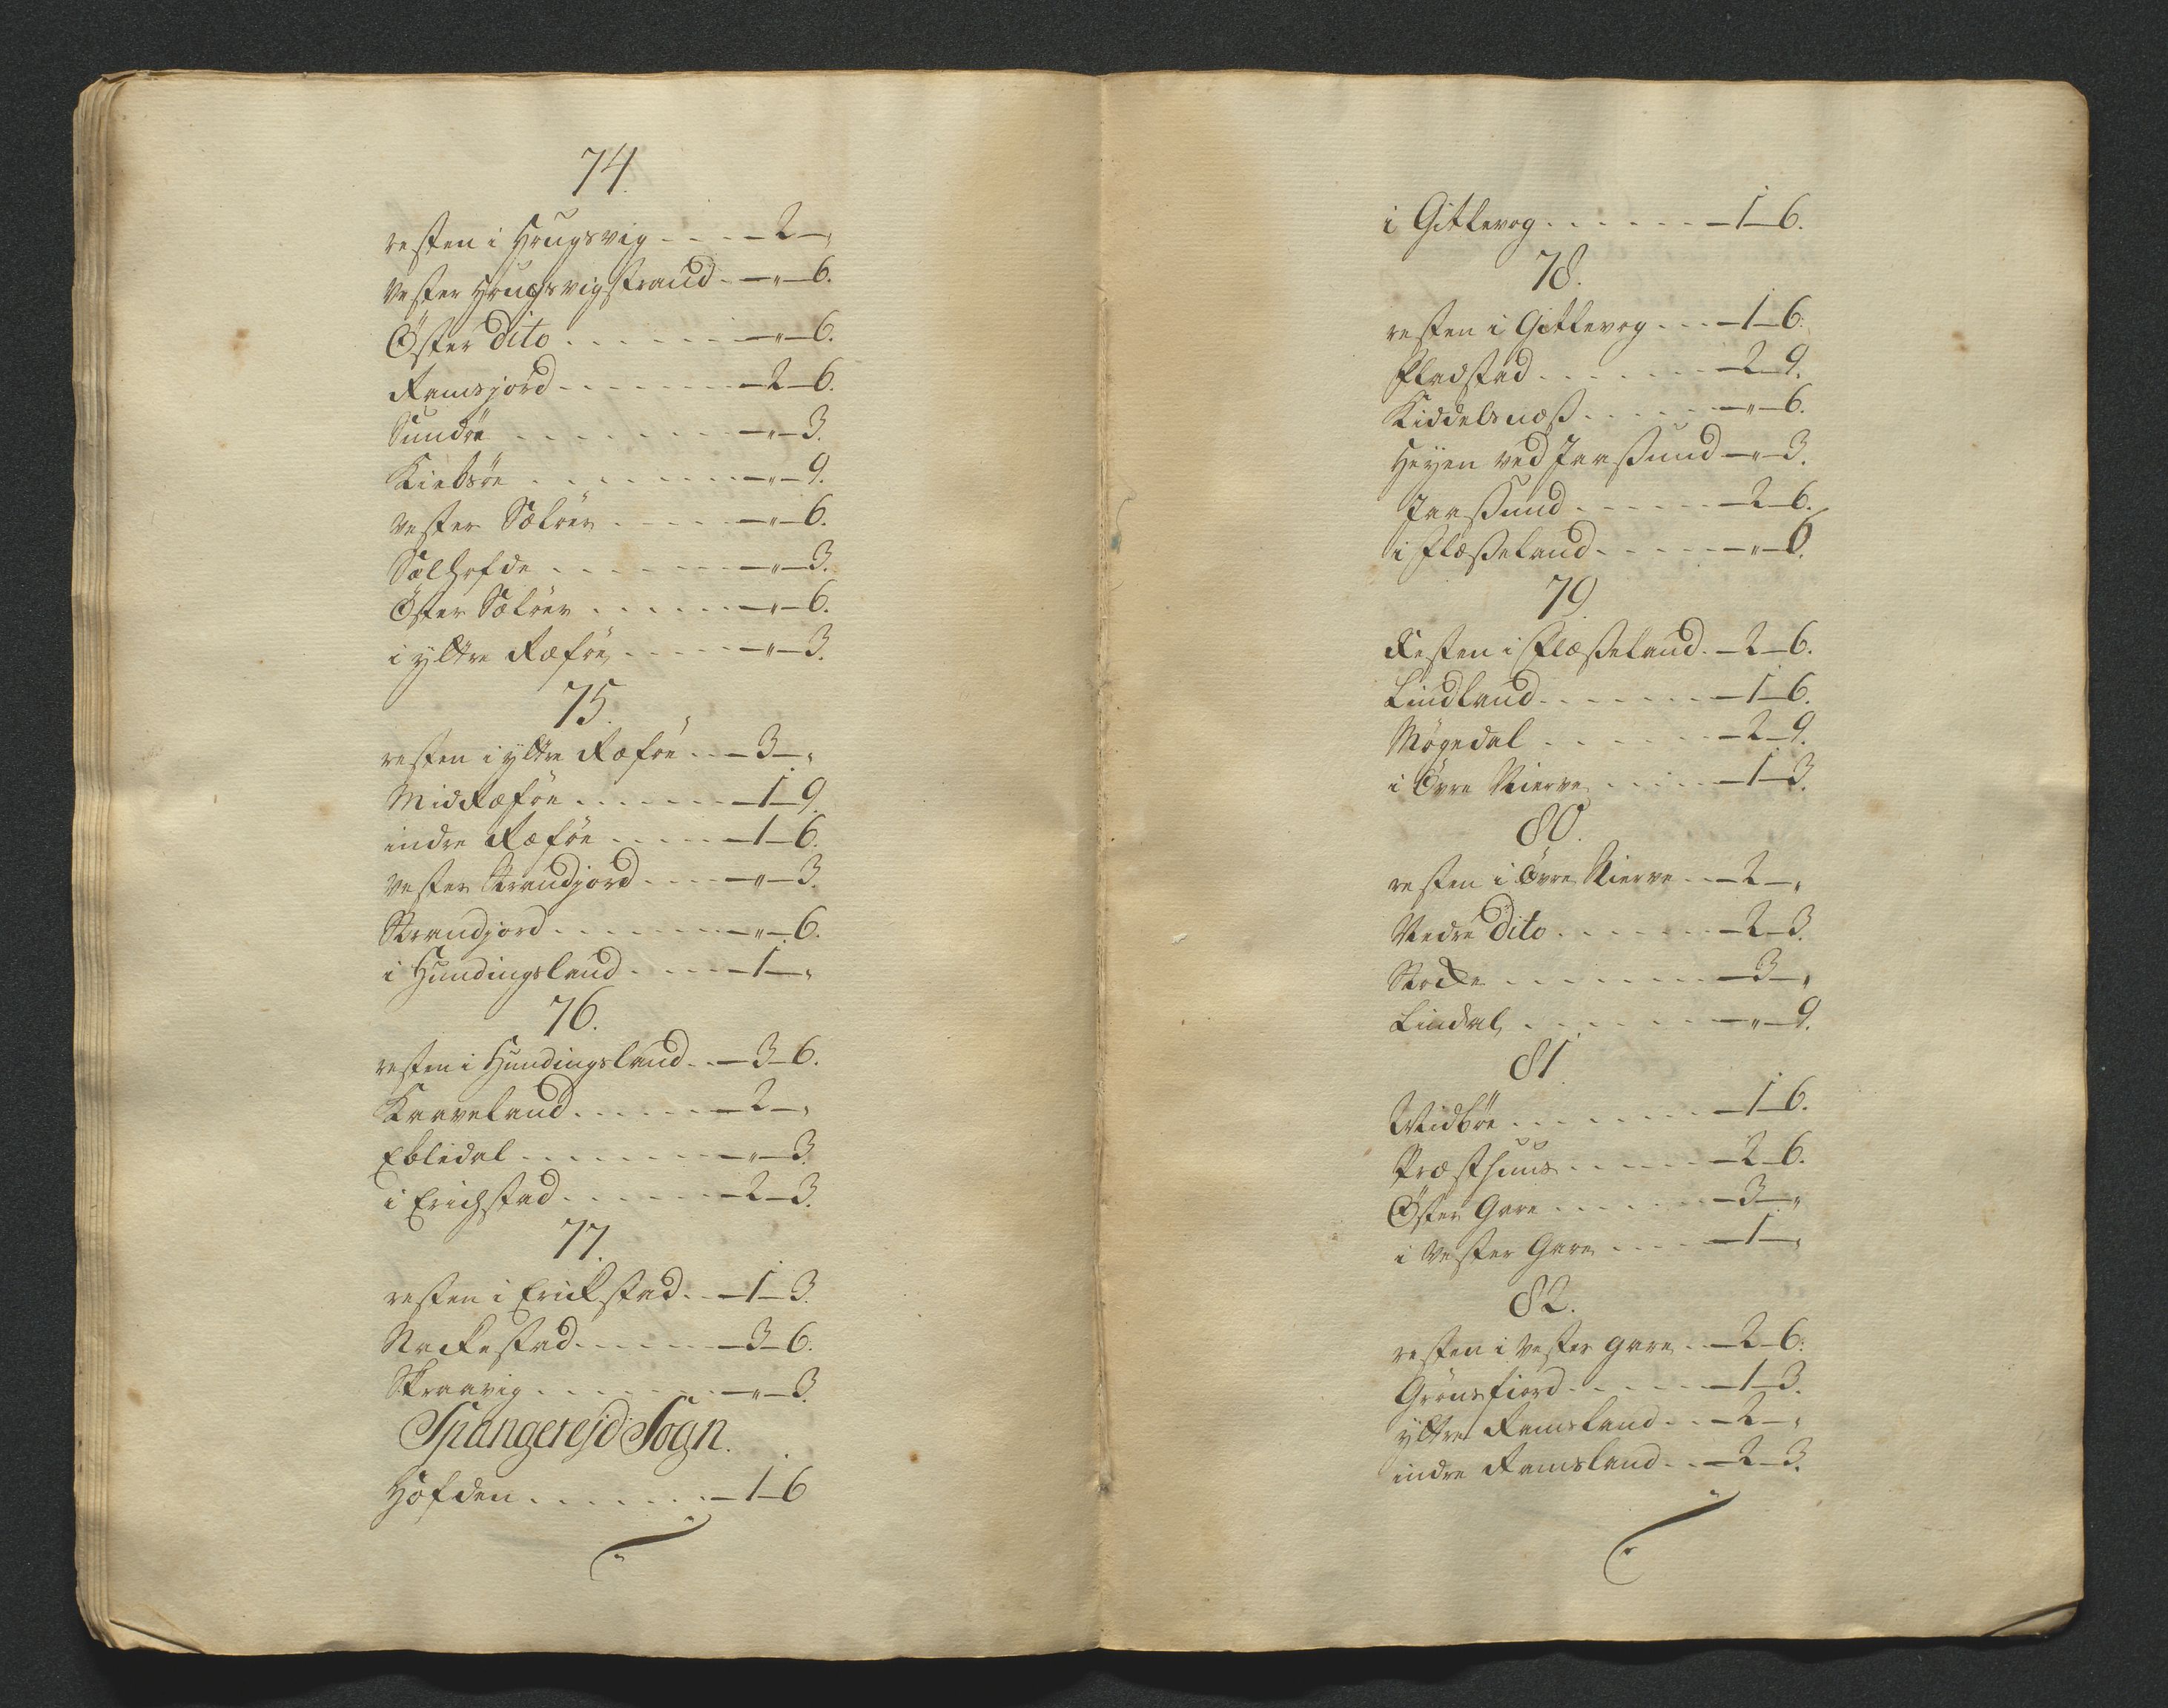 74.
resten i Hougsvig . . . . — 2 — „
Vester Hougsvigstrand . — „ — 6.
Öster Dito . . . . . . — „ — 6.
Ramsjord . . . . . . . — 2 — 6.
Sundöe . . . . . . . — „ — 3.
Kiebsöe . . . . . . . — „ — 9.
Vester Sælöer . . . . . — „ — 6.
Sælhofde . . . . . . . — „ — 3.
Öster Sælöer . . . . . . — „ — 6.
i yttre Ræföe . . . . . — „ — 3.
75.
resten i yttre Ræföe . . — 3 — „
MidRæföe . . . . . . . — 1 — 9.
indre Ræföe . . . . . — 1 — 6.
Vester Strandjord . . . . — „ — 3.
Strandjord . . . . . . . — „ — 6.
i Hundingsland . . . . — 1 — „
76.
resten i Hundingsland . . — 3 — 6.
Kaaveland . . . . . . — 2 — „
Eblidal . . . . . . . . — „ — 3.
i Erichstad . . . . . . — 2 — 3.
77.
resten i Erickstad . . — 1 — 3.
Nackestad . . . . . . — 3 — 6.
Skraavig . . . . . . . — „ — 3.
Spangerejd Sogn.
Höfden . . . . . . . — 1 — 6
i Gitlevog . . . . . . . — 1 — 6.
78.
resten i Gitlevog . . . — 1 — 6.
Fladstad . . . . . . . — 2 — 9.
Kiddelsnæß . . . . . . — „ — 6.
Heyen ved Jaaßund — „ — 3.
Jaaßund . . . . . . — 2 — 6.
i Flæßeland . . . . . . — „ — 6.
79
Resten i Flæßeland . — 2 — 6.
Lindland . . . . . . . — 1 — 6.
Møgedal . . . . . . — 2 — 9.
i Övre Nierve . . . . . — 1 — 3.
80.
resten i Övre Nierve . . — 2 — „
Nedre Dito . . . . . . . — 2 — 3.
Stocke . . . . . . . . — 3 — „
Lindal . . . . . . . . — „ — 9.
81.
Midböe . . . . . . . . — 1 — 6.
Præsthuus . . . . . . — 2 — 6.
Öster Gare . . . . . . — 3 — „
i Vester Gare . . . . — 1 — „
82.
resten i Vester gare . . — 2 — 6.
Grönsfiord . . . . . . — 1 — 3.
yttre Ramsland . . — 2 — „
indre Ramsland . . — 2 — 3.